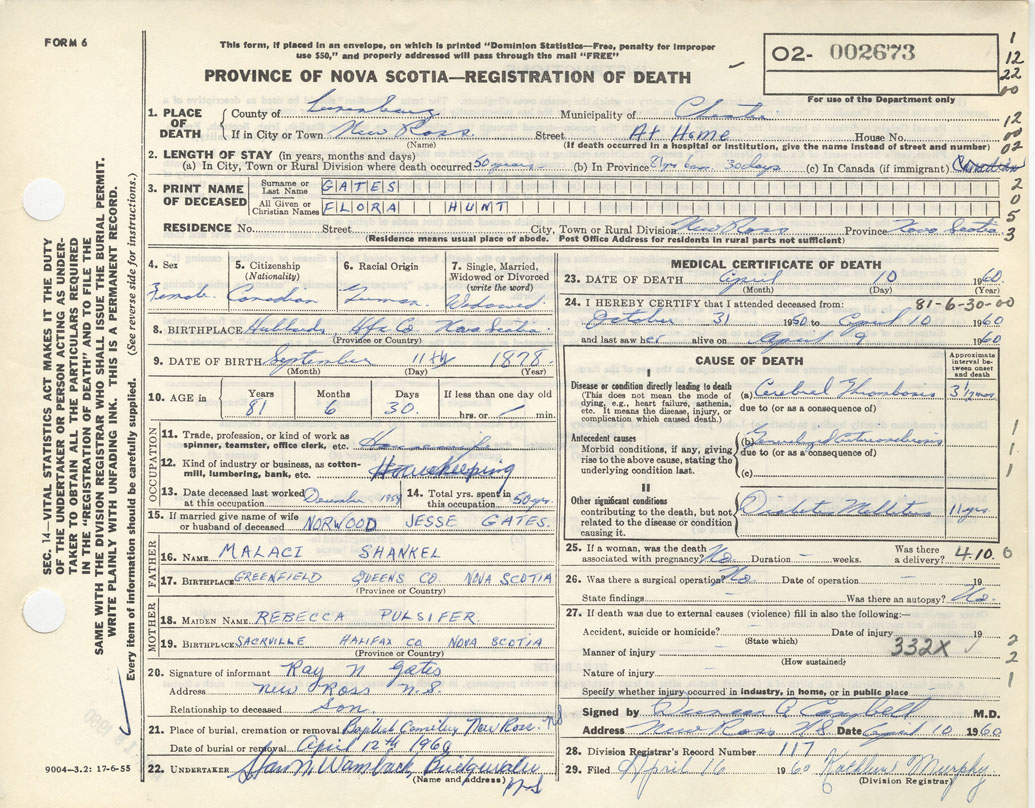 FORM 6
This form, if placed in an envelope, on which is printed "Dominion Statistics—Free, penalty for improper
use $50," and properly addressed will pass through the mail "FREE"
PROVINCE OF NOVA SCOTIA—REGISTRATION OF DEATH
02- 002673
For use of the Department only
1
12
22
00
12
00
02
2
0
5
3
1. PLACE OF DEATH
County of Lunenburg Municipality of Chester
If in City or Town New Ross Street At Home House No.
(Name) (If death occurred in a hospital or institution, give the name instead of street and number)
2. LENGTH OF STAY (in years, months and days)
(a) In City, Town or Rural Division where death occurred 50 years (b) In Province 81 yrs 6 mos 30 days (c) In Canada (if immigrant)
3. PRINT NAME OF DECEASED
Surname or Last Name GATES
All Given or Christian Names FLORA HUNT
RESIDENCE No. Street City, Town or Rural Division New Ross Province Nova Scotia
(Residence means usual place of abode. Post Office Address for residents in rural parts not sufficient)
4. Sex
Female
5. Citizenship (Nationality)
Canadian
6. Racial Origin
German
7. Single, Married, Widowed or Divorced (write the word)
Widowed
8. BIRTHPLACE Hubbards Hfx Co Nova Scotia
(Province or Country)
9. DATE OF BIRTH September 11th 1878
(Month) (Day) (Year)
10. AGE in
Years 81
Months 6
Days 30
If less than one day old
hrs. or min.
OCCUPATION
11. Trade, profession, or kind of work as spinner, teamster, office clerk, etc. Housewife
12. Kind of industry or business, as cotton-mill, lumbering, bank, etc. Housekeeping
13. Date deceased last worked at this occupation December 1959
14. Total yrs. spent in this occupation 50 yrs.
15. If married give name of wife or husband of deceased NORWOOD JESSE GATES.
FATHER
16. NAME MALACI SHANKEL
17. BIRTHPLACE GREENFIELD QUEENS CO. NOVA SCOTIA
(Province or Country)
MOTHER
18. MAIDEN NAME REBECCA PULSIFER.
19. BIRTHPLACE SACKVILLE HALIFAX CO. NOVA SCOTIA
(Province or Country)
20. Signature of informant Ray N Gates
Address New Ross N.S.
Relationship to deceased Son.
21. Place of burial, cremation or removal Baptist Cemetery New Ross. NS
Date of burial or removal April 12th 1960
22. UNDERTAKER Wambach, Bridgewater NS
(Name and address)
MEDICAL CERTIFICATE OF DEATH
23. DATE OF DEATH April 10 1960
(Month) (Day) (Year)
24. I HEREBY CERTIFY that I attended deceased from: 81-6-30-00
October 31 1950 to April 10 1960
and last saw her alive on April 9 1960
CAUSE OF DEATH
Approximate interval between onset and death
I
Disease or condition directly leading to death
(This does not mean the mode of dying, e.g., heart failure, asthenia, etc. It means the disease, injury, or complication which caused death.)
(a) Cerebral Thrombosis 3½ mos
due to (or as a consequence of)
Antecedent causes
Morbid conditions, if any, giving rise to the above cause, stating the underlying condition last.
(b) Generalized Arteriosclerosis
due to (or as a consequence of)
(c)
1
1
1
II
Other significant conditions
contributing to the death, but not related to the disease or condition causing it.
Diabetes Mellitus 11 yrs
25. If a woman, was the death associated with pregnancy? No Duration — weeks. Was there a delivery? 4.10. 0
26. Was there a surgical operation? No Date of operation — 19
State findings Was there an autopsy? No.
27. If death was due to external causes (violence) fill in also the following:—
Accident, suicide or homicide? Date of injury 19
(State which)
Manner of injury 332X
(How sustained)
Nature of injury
2
2
1
Specify whether injury occurred in industry, in home, or in public place
Signed by Duncan Campbell M.D.
Address New Ross NS Date April 10 1960
28. Division Registrar's Record Number 117
29. Filed April 16 1960 Murphy
(Division Registrar)
9004—3.2: 17-6-55
SEC. 14—VITAL STATISTICS ACT MAKES IT THE DUTY
OF THE UNDERTAKER OR PERSON ACTING AS UNDER-
TAKER TO OBTAIN ALL THE PARTICULARS REQUIRED
IN THE "REGISTRATION OF DEATH" AND TO FILE THE
SAME WITH THE DIVISION REGISTRAR WHO SHALL ISSUE THE BURIAL PERMIT.
WRITE PLAINLY WITH UNFADING INK. THIS IS A PERMANENT RECORD.
Every item of information should be carefully supplied. (See reverse side for instructions.)